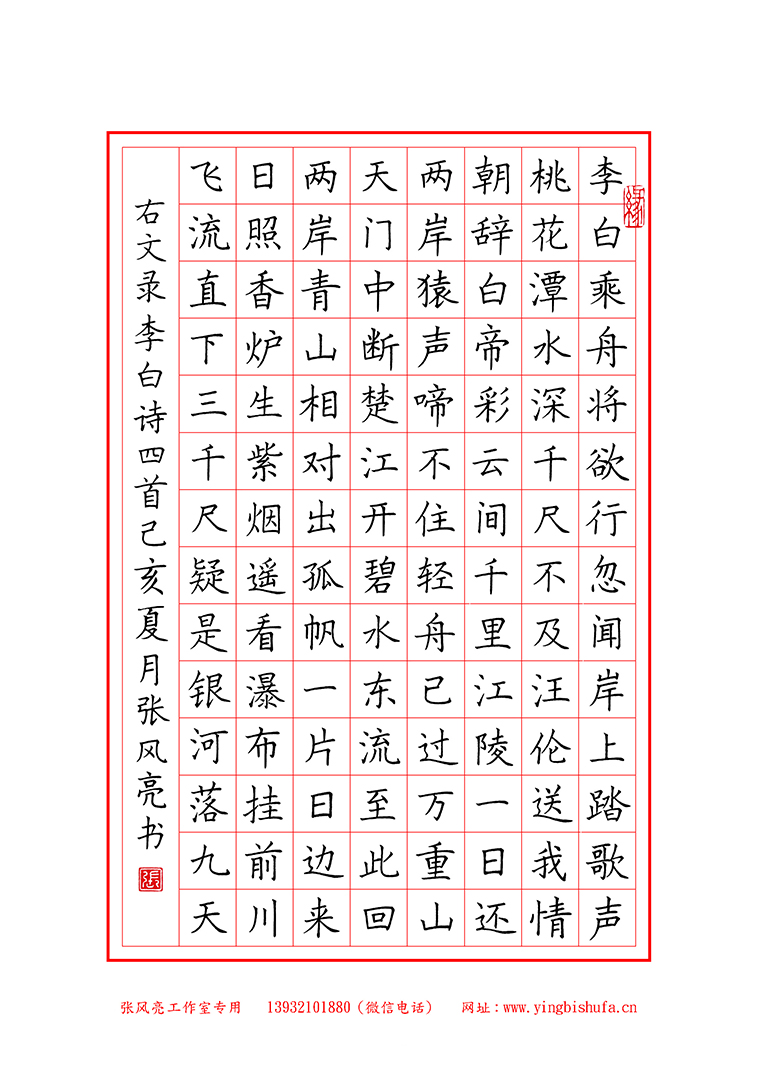 李白乘舟将欲行忽闻岸上踏歌声
桃花潭水深千尺不及汪伦送我情
朝辞白帝彩云间千里江陵一日还
两岸猿声啼不住轻舟已过万重山
天门中断楚江开碧水东流至此回
两岸青山相对出孤帆一片日边来
日照香炉生紫烟遥看瀑布挂前川
飞流直下三千尺疑是银河落九天
右文录李白诗四首己亥夏月张风亮书
缘
张
张风亮工作室专用 13932101880（微信电话） 网址：www.yingbishufa.cn